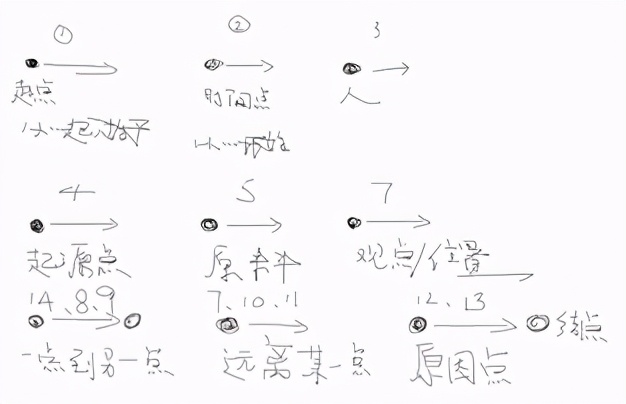 ① ② 3
起点 时间点 人
从…起开始 从…开始
4 5 7
起源点 原材料 观点/位置
14、8、9 7、10、11 12、13
一点到另一点 远离某一点 原因点 结点